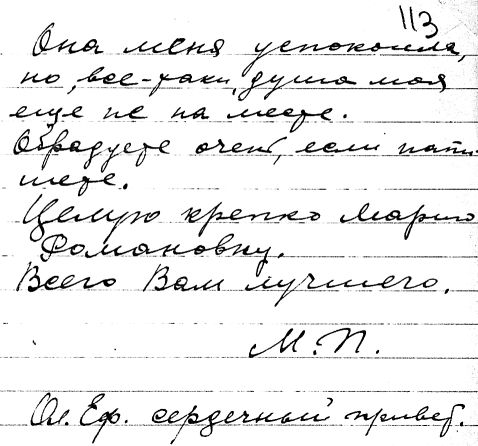 113
Она меня успокоила,
но, все-таки, душа моя
еще не на месте.
Обрадуете очень, если напи-
шете.
Целую крепко Марию
Романовну.
Всего Вам лучшего.
М.П.
Ол. Еф. сердечный привет.